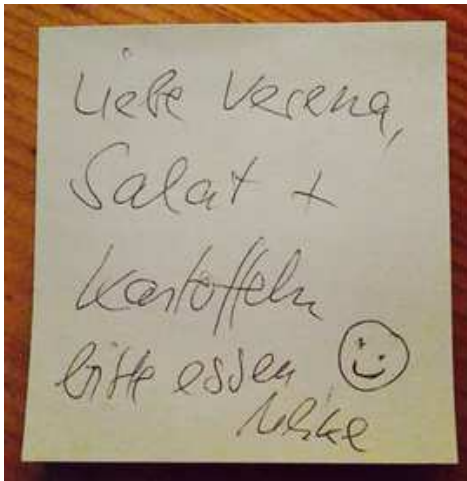 Liebe Verena,
Salat +
Kartoffeln
bitte essen